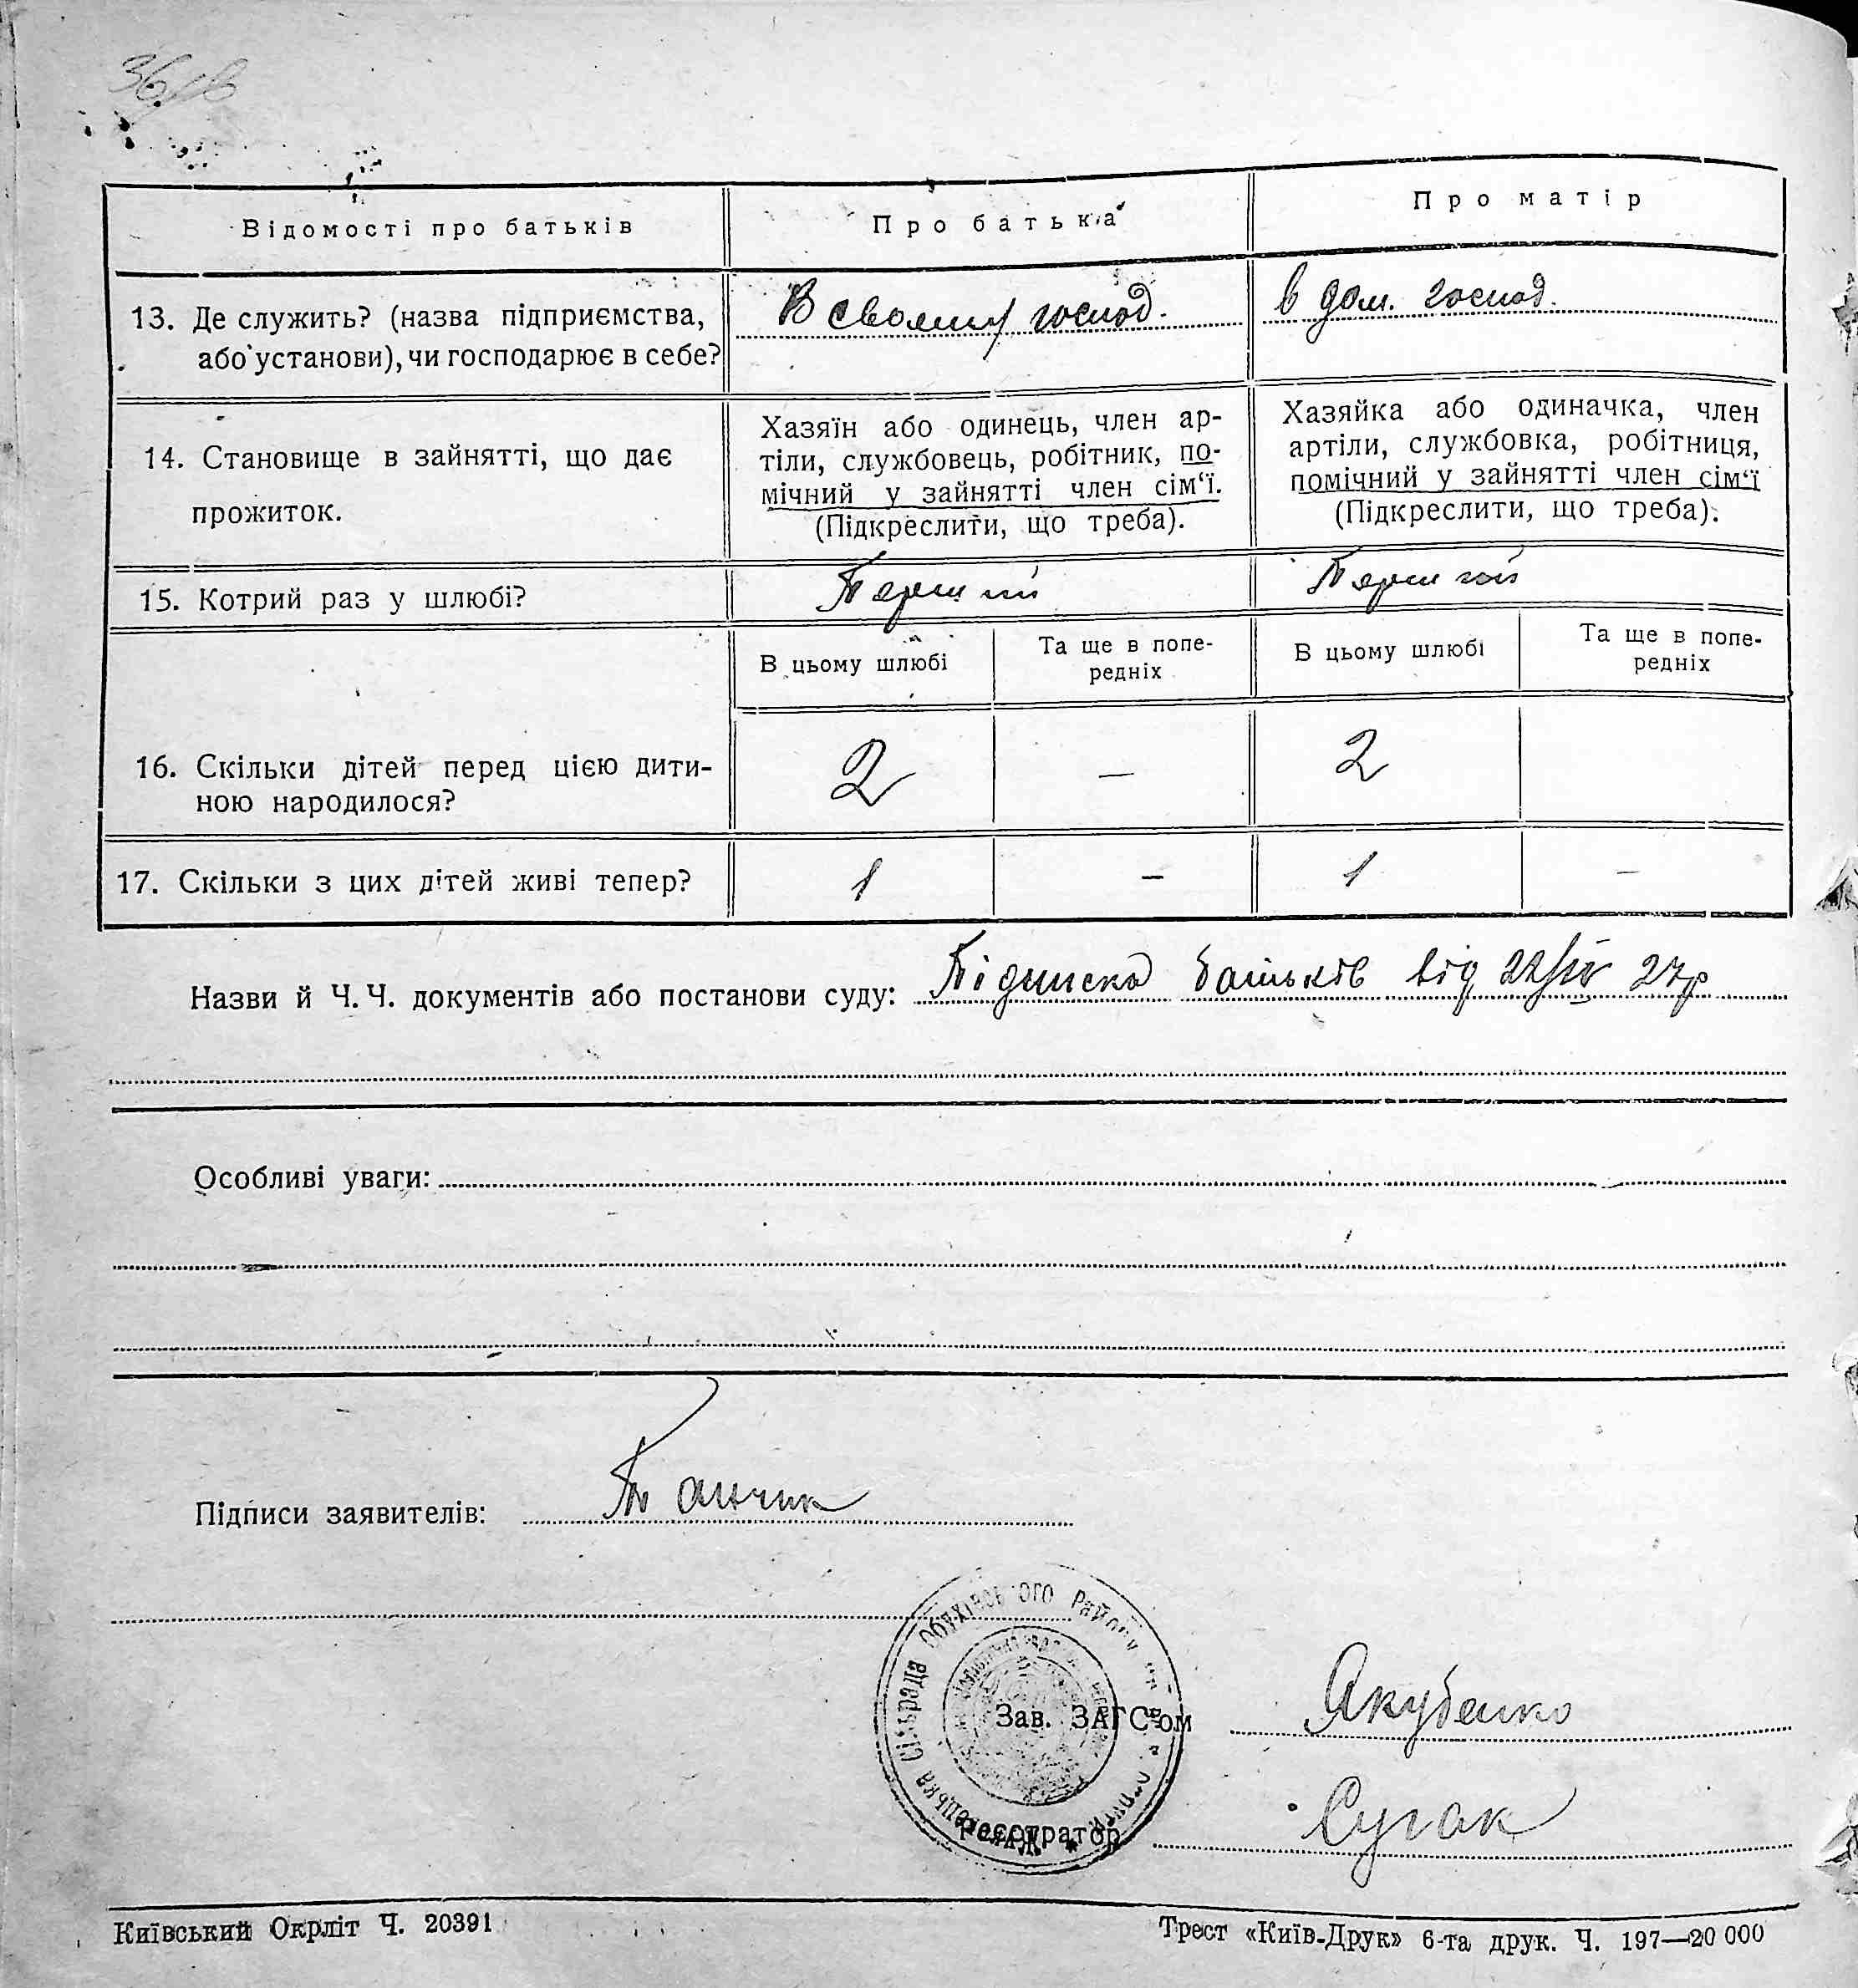 Відомості про батьків
Про батька
Про матір
13. Де служить? (назва підприємства,
або установи), чи господарює в себе?
В своему господ.
в дом. господ.
14. Становище в зайнятті, що дає
прожиток.
Хазяїн або одинець, член ар-
тіли, службовець, робітник, по-
мічний у зайнятті член сім‘ї.
(Підкреслити, що треба).
Хазяйка або одиначка, член
артіли, службовка, робітниця,
помічний у зайнятті член сім‘ї
(Підкреслити, що треба).
15. Котрий раз у шлюбі?
Перший
Перший
В цьому шлюбі
Та ще в попе-
редніх
В цьому шлюбі
Та ще в попе-
редніх
16. Скільки дітей перед цією дити-
ною народилося?
2
—
2
17. Скільки з цих дітей живі тепер?
1
—
1
—
Назви й Ч. Ч. документів або постанови суду: Підписка батьків від 22/IV 27р
Особливі уваги:
Підписи заявителів:
Панчик
Сільрада Обухівського Району
Зав. ЗАГС‘ом
Якубенко
Реєстратор
Сугак
Київський Окрліт Ч. 20391
Трест «Київ-Друк» 6-та друк. Ч. 197—20 000